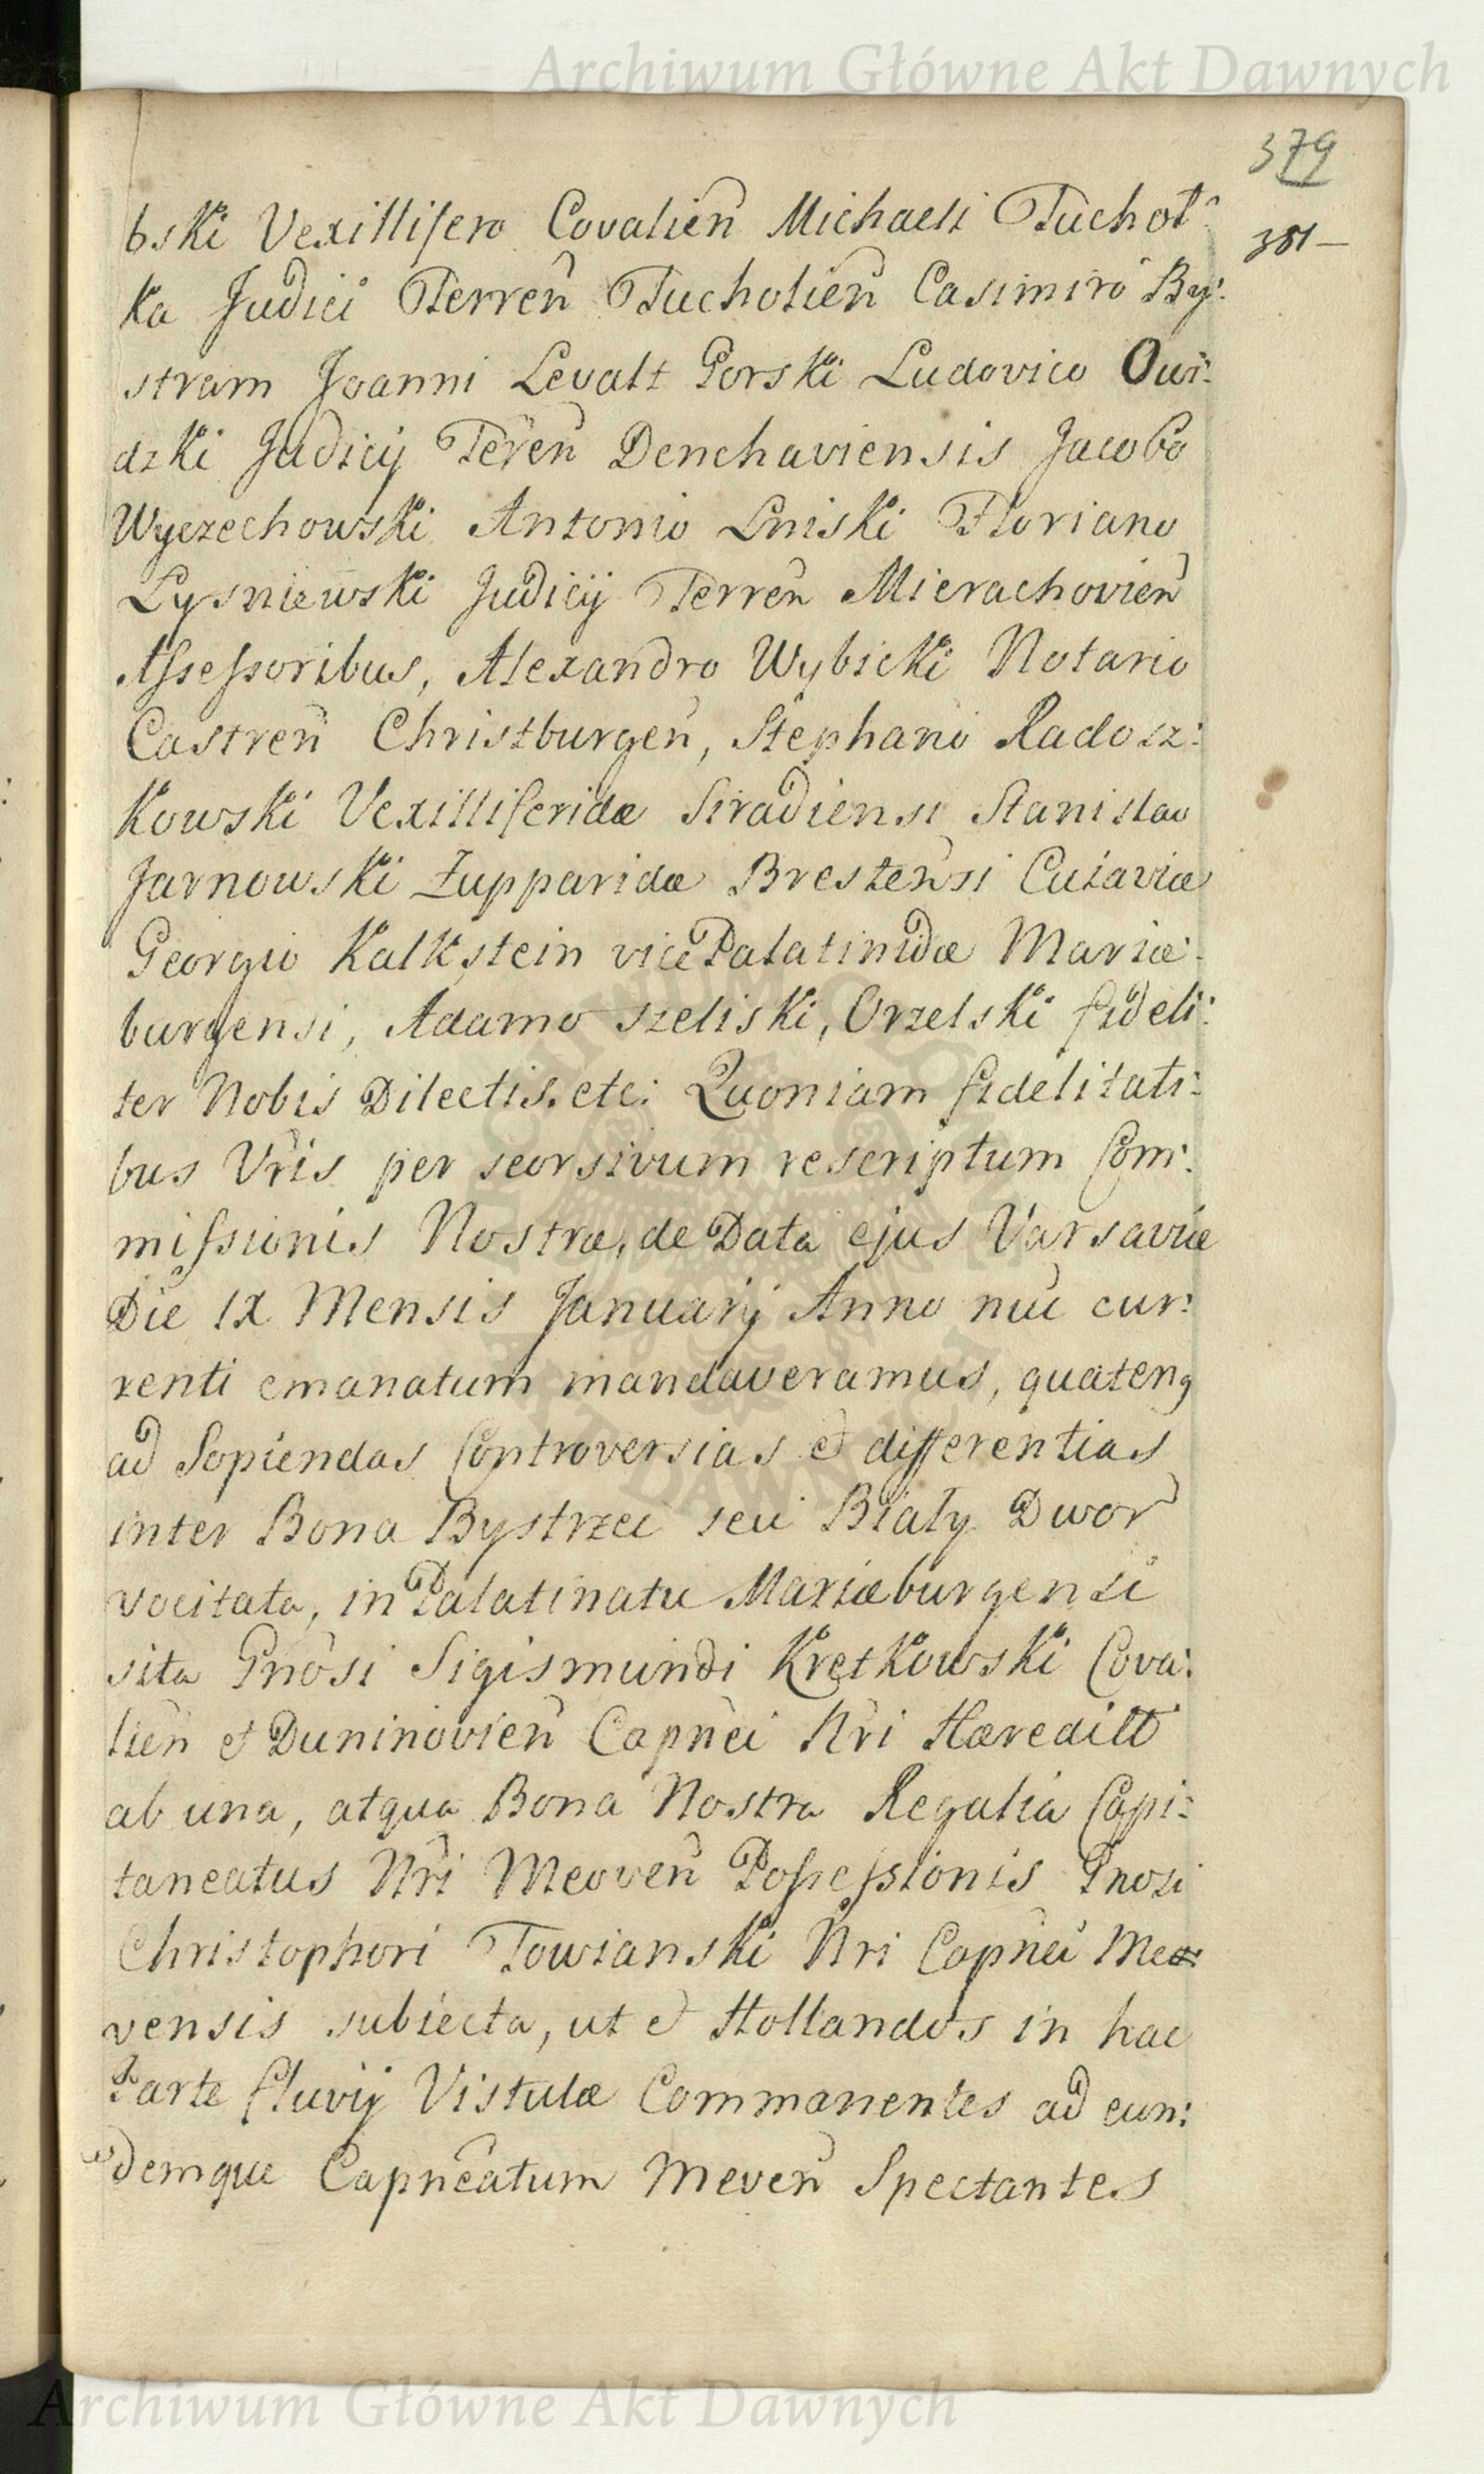 Archiwum Główne Akt Dawnych
379
381–
bski Vexillifero Covalien̄ Michaeli Tuchoł:
ka Judici Terren̄ Tucholien̄ Casimiro By:
stram Joanni Levalt Gorski Ludovico Owi:
dzki Judicij Teren̄ Denchaviensis Jacobo
Wyczechowski Antonio Lniski Floriano
Lysniewski Judicij Terren̄ Mierachovien̄
Assessoribus, Alexandro Wybicki Notario
Castren̄ Christburgen̄, Stephano Radosz:
kowski Vexilliferidæ Siradiensi Stanislao
Jarnowski Zupparidæ Brestensi Cuiaviæ
Georgio Kalkstein vice Palatinidæ Mariæ:
burgensi, Adamo Szeliski, Orzelski fideli:
ter Nobis Dilectis. etc: Quoniam fidelitati:
bus Vr̄is per seorsivum rescriptum Com:
missionis Nostræ, de Data ejus Varsaviæ
Die IX Mensis Januarij Anno nūc cur:
renti emanatum mandaveramus, quateng
ad Sopiendas Controversias et differentias
inter Bona Bystrzec seu Biały Dwor
vocitata, in Palatinatu Mariæburgensi
sita Gnōsi Sigismundi Kretkowski Cova:
lien̄ et Duninovien̄ Capn̄ei Nr̄i Hæredilt
ab una, atqua Bona Nostra Regalia Capi:
taneatus Nr̄i Meoven̄ Possessionis Gnosi
Christophori Towianski Nri Capn̄ei Meo:
vensis subiecta, ut et Hollandos in hac
Parte fluvij Vistulæ Commanentes ad eun:
demque Capn̄eatum Meven̄ Spectantes
ARCHIWUM GŁÓWNE
AKT DAWNYCH
Archiwum Główne Akt Dawnych